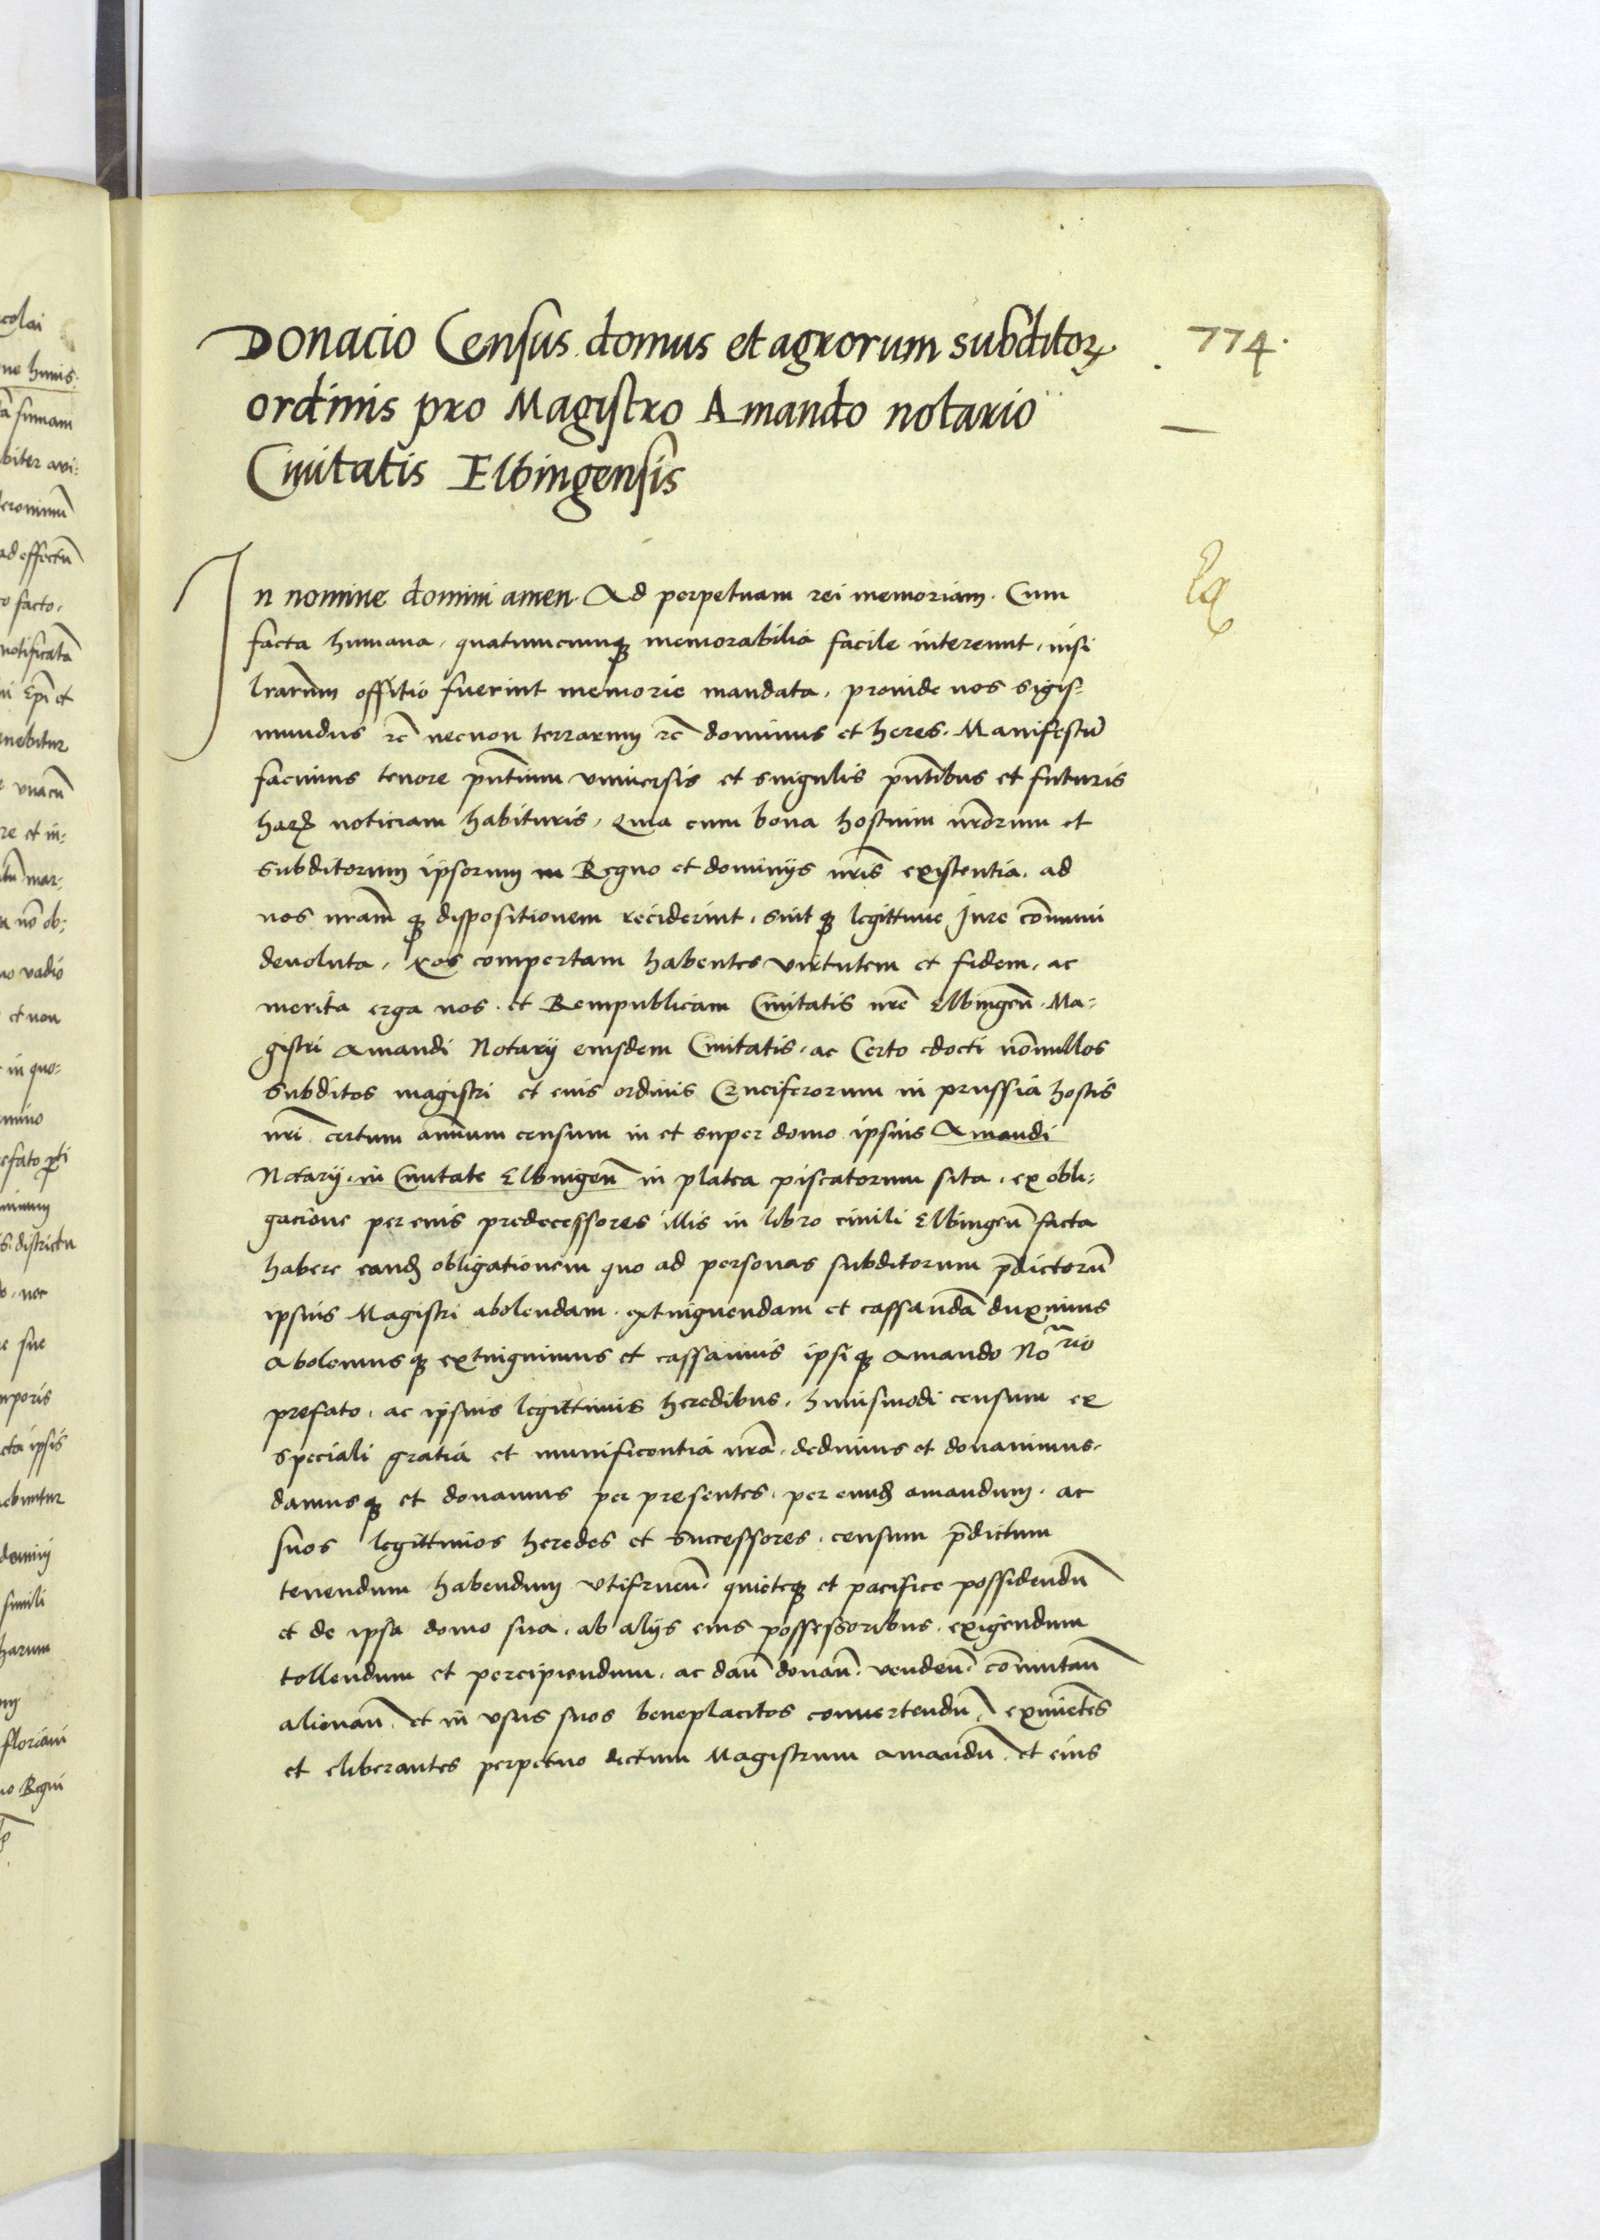 774.
Donacio Census domus et agrorum subditoꝝ
ordinis pro Magistro Amando notario
Civitatis Elbingensis
In nomine domini amen Ad perpetuam rei memoriam. Cum
facta humana, quatumcumqꝫ memorabilia facile intereunt, nisi
lrarum offitio fuerint memorie mandata, proinde nos Sigis-
mundus rc necnon terrarum rc dominus et heres. Manifestũ
facimus tenore pñtium universis et singulis pñtibus et futuris
harꝫ noticiam habituris, Quia cum bona hostium nrõrum et
subditorum ipsorum in Regno et dominijs nris existentia, ad
nos nram qꝫ dispositionem reciderint, sint qꝫ legittime Jure cõmuni
devoluta, Nos compertam habentes virtutem et fidem, ac
merita erga nos, et Rempublicam Civitatis nre Elbingeñ. Ma-
gistri Amandi Notarij eiusdem Civitatis, ac Certo edocti nõnullos
subditos magistri et eius ordinis Cruciferorum in prussia hostis
nri certum annuum censum in et super domo ipsius Amandi
Notarij in Civitate Elbingeñ in platea piscatorum sita, ex obli-
gacione per eius predecessores illis in libro civili Elbingeñ facta
habere eandꝫ obligationem quo ad personas subditorum p̃dictorũ
ipsius Magistri abolendam, extinguendam et cassandã duximus
Abolemus qꝫ extinguimus et cassamus ipsi qꝫ Amando Norio
prefato, ac ipsius legittimis heredibus, huiusmodi censum ex
speciali gratia et munificentia nrã, dedimus et donavimus,
damusqꝫ et donamus per presentes, per eundꝫ amandum, ac
suos legittimos heredes et successores, censum p̃dictum
tenendum habendum utifrueñ, quieteqꝫ et pacifice possidendũ
et de ipsa domo sua, ab alijs eius possessoribus, exigendum
tollendum et percipiendum, ac dañ donañ, vendeñ, cõmutañ
alienañ, et in usus suos beneplacitos convertendũ, eximẽtes
et eliberantes perpetuo dictum Magistrum amandũ, et eius